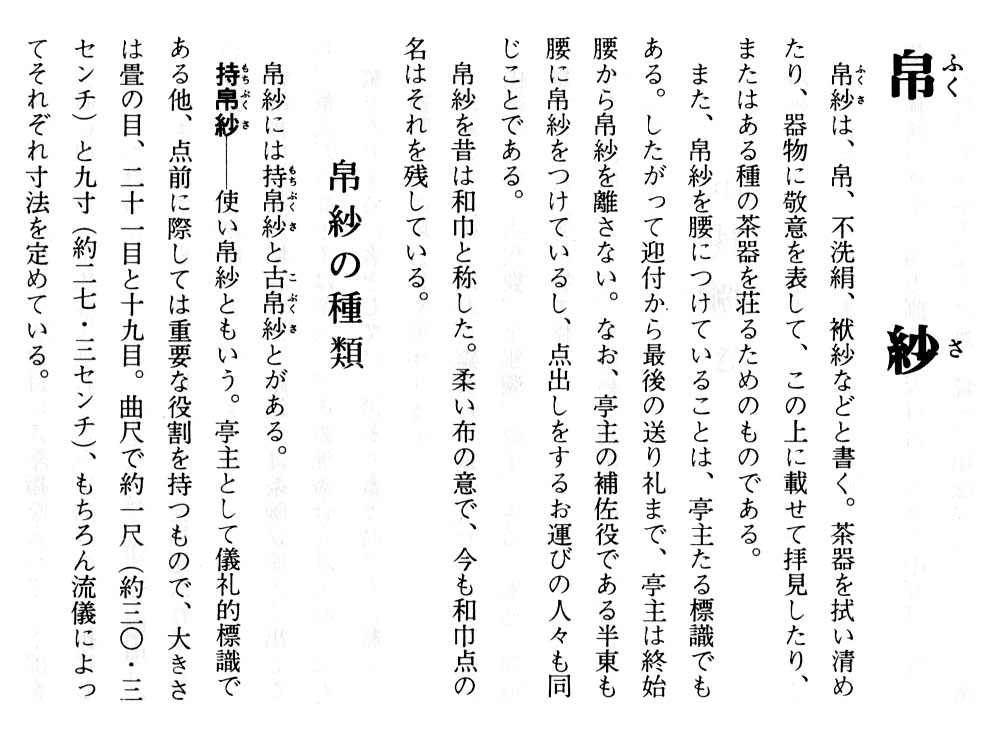 帛紗
帛紗は、帛、不洗絹、袱紗などと書く。茶器を拭い清め
たり、器物に敬意を表して、この上に載せて拝見したり、
またはある種の茶器を荘るためのものである。
また、帛紗を腰につけていることは、亭主たる標識でも
ある。したがって迎付から最後の送り礼まで、亭主は終始
腰から帛紗を離さない。なお、亭主の補佐役である半東も
腰に帛紗をつけているし、点出しをするお運びの人々も同
じことである。
帛紗を昔は和巾と称した。柔い布の意で、今も和巾点の
名はそれを残している。
帛紗の種類
帛紗には持帛紗と古帛紗とがある。
持帛紗――使い帛紗ともいう。亭主として儀礼的標識で
ある他、点前に際しては重要な役割を持つもので、大きさ
は畳の目、二十一目と十九目。曲尺で約一尺（約三〇・三
センチ）と九寸（約二七・三センチ）、もちろん流儀によっ
てそれぞれ寸法を定めている。